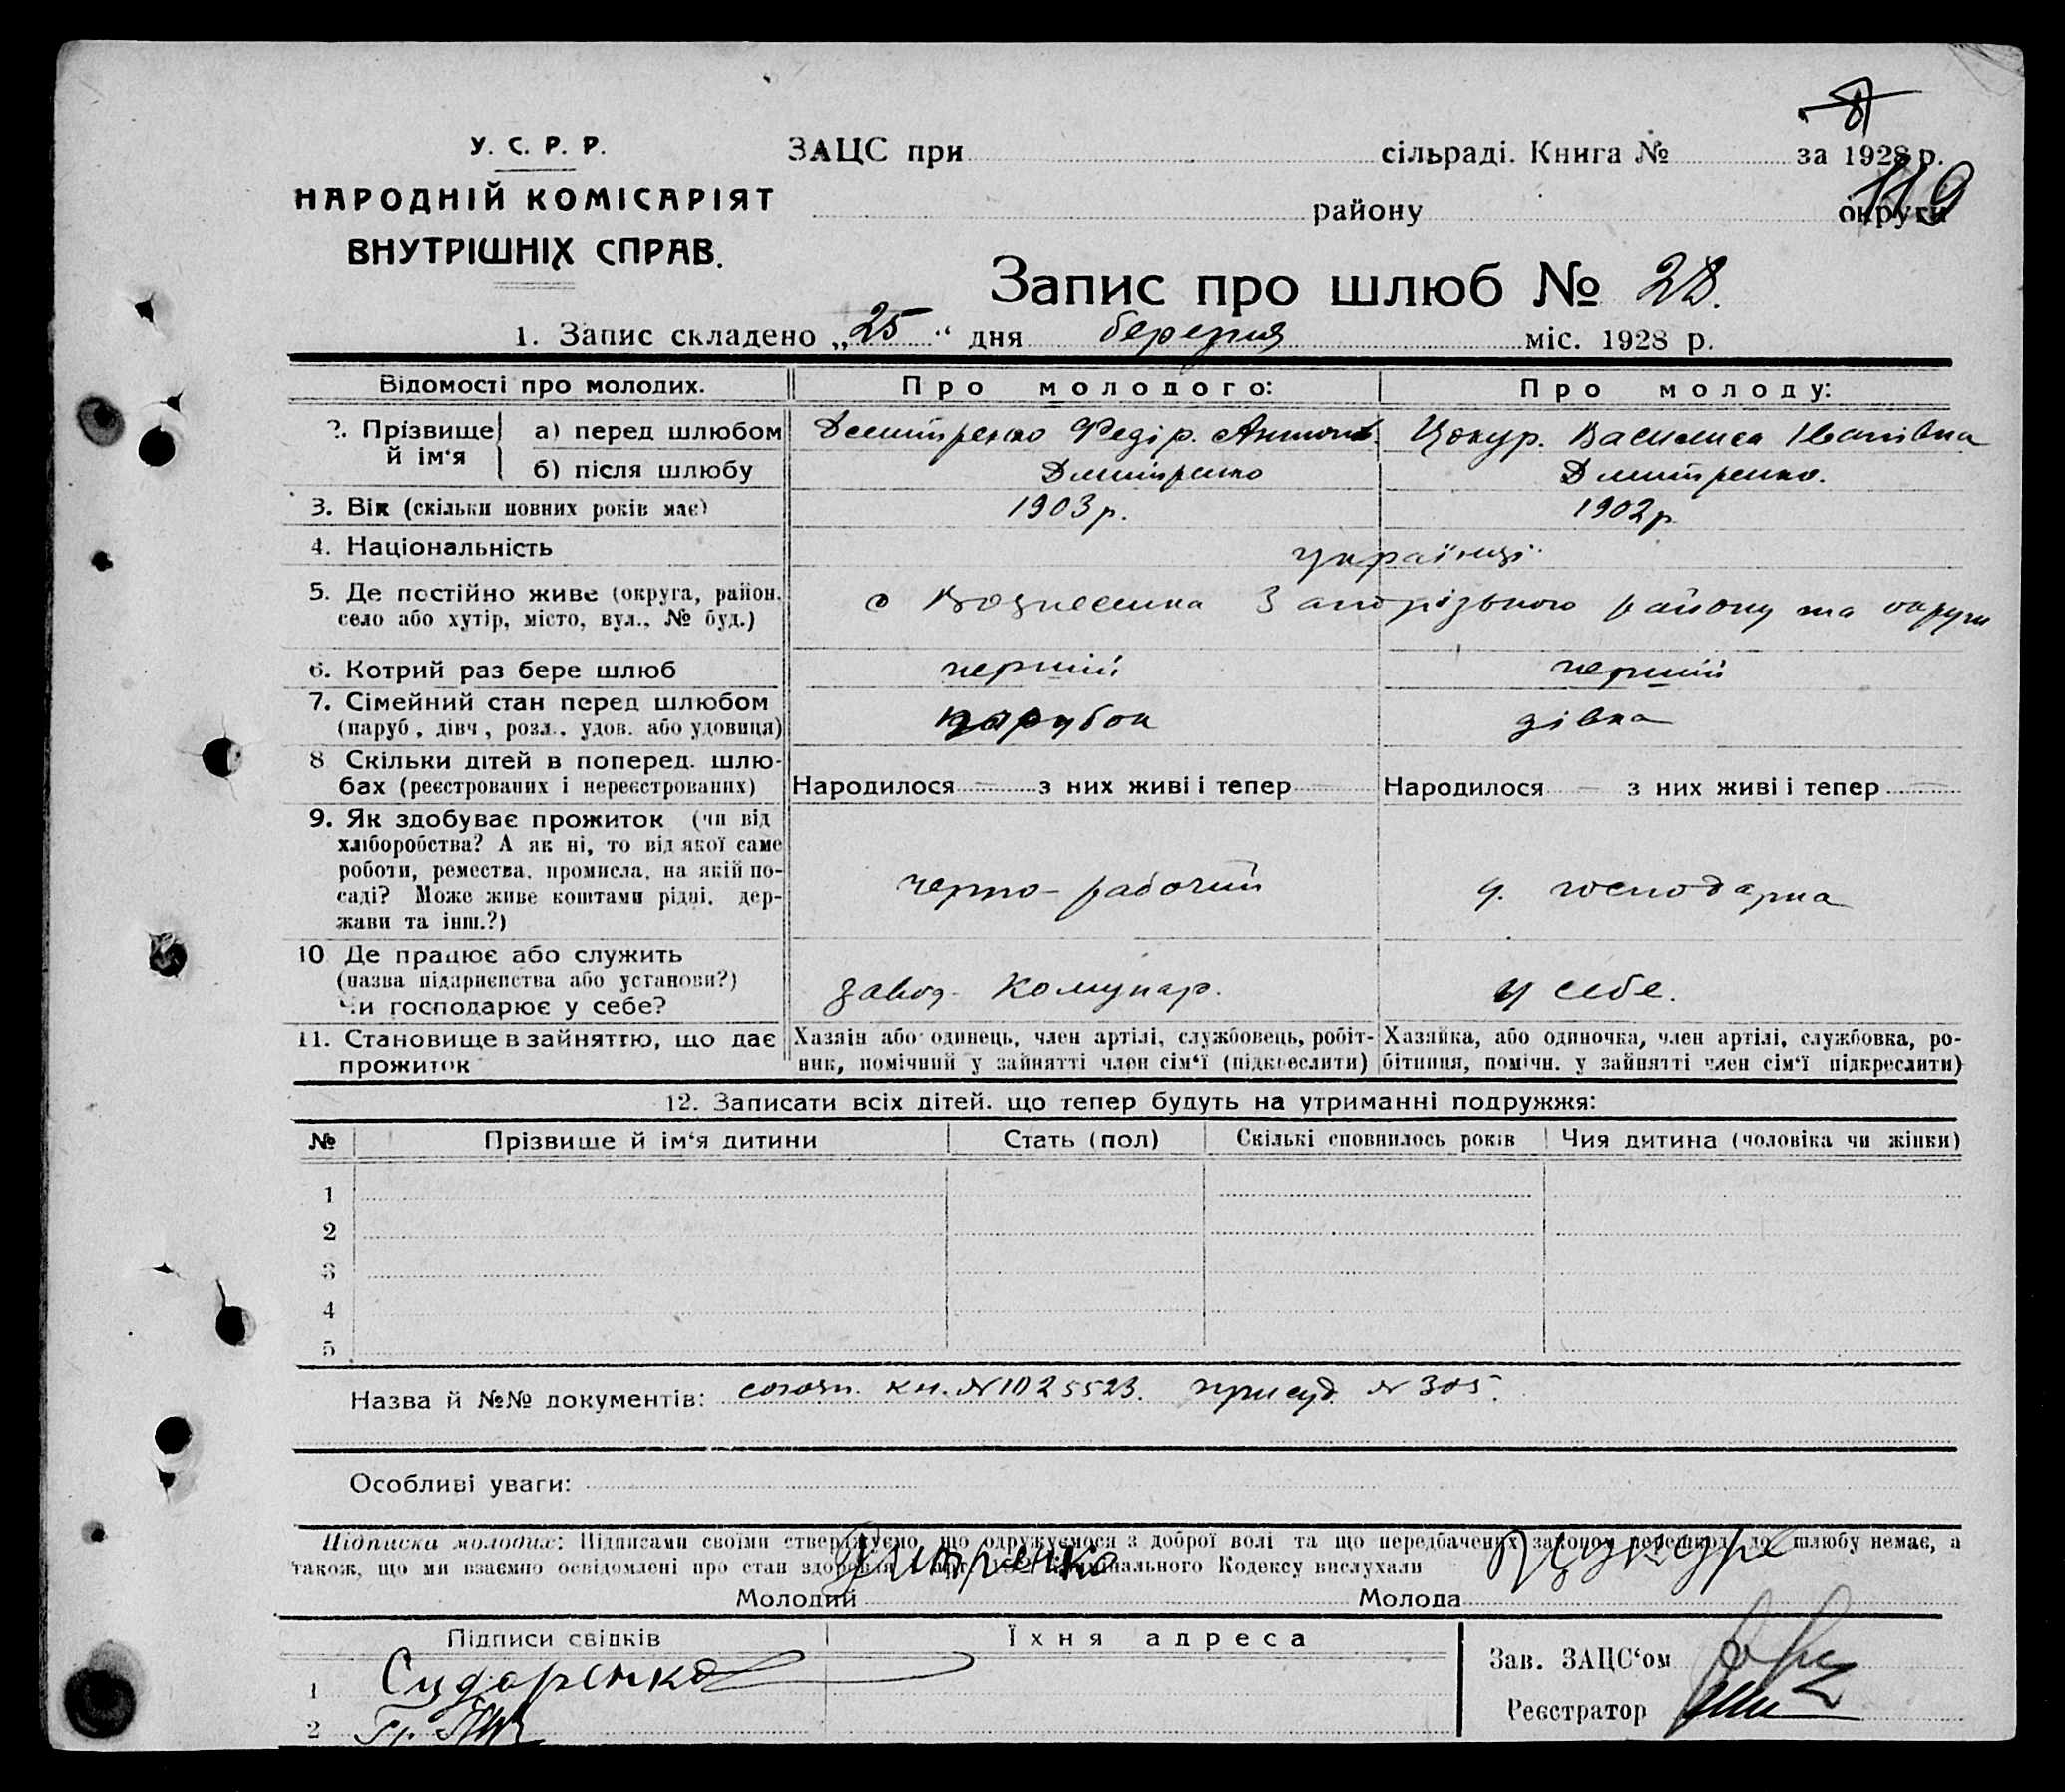 У. С. Р. Р.
НАРОДНІЙ КОМІСАРІЯТ
ВНУТРІШНІХ СПРАВ.
ЗАЦС при сільраді. Книга № за 1928 р.
району округи
119
Запис про шлюб № 28.
1. Запис складено „25“ дня березня міс. 1928 р.
Відомості про молодих. Про молодого: Про молоду:
2. Прізвище й ім‘я а) перед шлюбом Дмитренко Федір. Антон. Цокур. Василиса Іванівна
б) після шлюбу Дмитренко Дмитренко.
3. Вік (скільки повних років має) 1903 р. 1902 р.
4. Національність українці
5. Де постійно живе (округа, район, село або хутір, місто, вул., № буд.) с Вознесенка Запорізького району та округи
6. Котрий раз бере шлюб перший перший
7. Сімейний стан перед шлюбом (паруб, дівч, розл., удов. або удовиця) парубок дівка
8 Скільки дітей в поперед. шлюбах (реєстрованих і нереєстрованих) Народилося — з них живі і тепер — Народилося — з них живі і тепер —
9. Як здобуває прожиток (чи від
хліборобства? А як ні, то від якої саме
роботи, ремества, промисла, на якій по-
саді? Може живе коштами рідні, дер-
жави та інш.?)
черно-рабочий господарка
10 Де працює або служить
(назва підприємства або установи?)
Чи господарює у себе?
завод Комунар. у себе.
11. Становище в зайняттю, що дає прожиток
Хазяін або одинець, член артілі, службовець, робіт-
ник, помічний у зайнятті член сім‘ї (підкреслити)
Хазяйка, або одиночка, член артілі, службовка, ро-
бітниця, помічн. у зайнятті член сім‘ї підкреслити)
12. Записати всіх дітей, що тепер будуть на утриманні подружжя:
№ Прізвище й ім‘я дитини Стать (пол) Скількі сповнилось років Чия дитина (чоловіка чи жінки)
1
2
3
4
5
Назва й №№ документів: союзн. кн. № 1025523. присуд. № 305.
Особливі уваги:
Підписка молодих: Підписами своїми стверджуємо, що одружуємося з доброї волі та що передбачених законом перешкод до шлюбу немає, а
також, що ми взаємно освідомлені про стан здоровля Кримінального Кодексу вислухали
Молодий Дмитренко Молода
Підписи свідків Їхня адреса
1 Сидоренко
2
Зав. ЗАЦС‘ом
Реєстратор